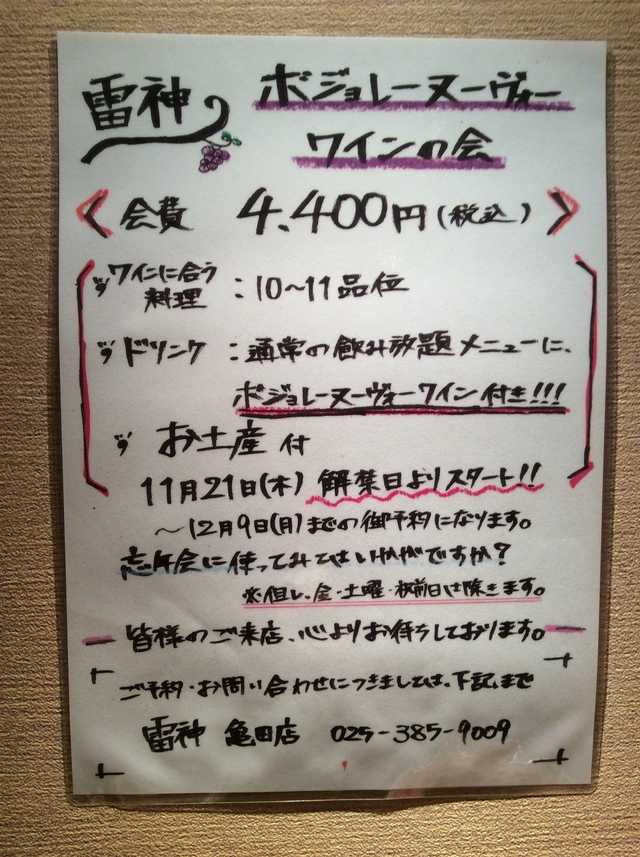 雷神 ボジョレーヌーヴォー
ワインの会
会費 4,400円(税込)
ワインに合う
料理 : 10~11品位
ドリンク : 通常の飲み放題メニューに、
ボジョレーヌーヴォーワイン付き!!!
お土産付
11月21日(木) 解禁日よりスタート!!
~12月9日(月)までの御予約になります。
忘年会に使ってみてはいかがですか?
※但し、金・土曜・祝前日は除きます。
皆様のご来店、心よりお待ちしております。
ご予約・お問い合わせにつきましては、下記まで
雷神 亀田店 025-385-9009